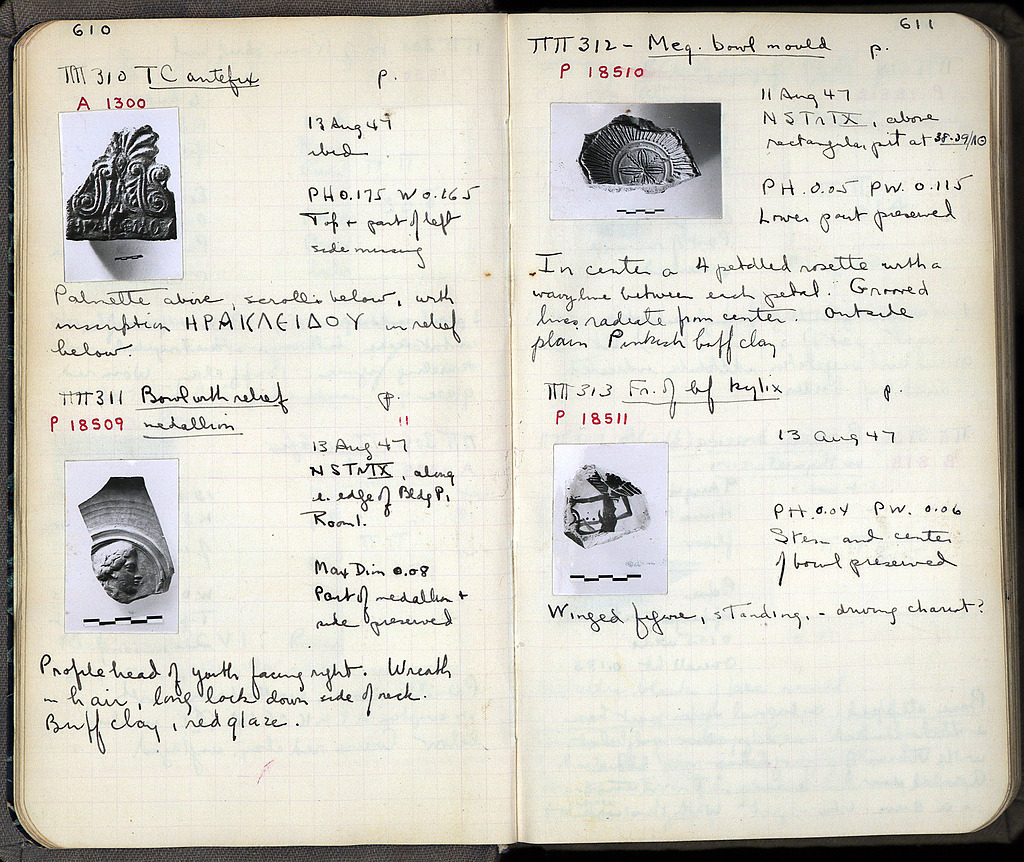 610
ΠΠ 310 TC antefix p.
A 1300
13 Aug 47
ibid
PH 0.175 W 0.165
Top + part of left
side missing
Palmette above, scrolls below, with
inscription ΗΡΑΚΛΕΙΔΟΥ in relief
below.
ΠΠ 311 Bowl with relief p.
P 18509 medallion "
13 Aug 47
NSTrIX, along
e. edge of Bldg P,
Room 1.
Max Dim 0.08
Part of medallion +
side preserved
Profile head of youth facing right. Wreath
in hair, long lock down side of neck.
Buff clay, red glaze.
611
ΠΠ 312 - Meg. bowl mould p.
P 18510
11 Aug 47
NSTrIX, above
rectangular pit at 38-39/ΛΟ
PH. 0.05 PW. 0.115
Lower part preserved
In center a 4 petalled rosette with a
wavy line between each petal. Grooved
lines radiate from center. Outside
plain Pinkish buff clay
ΠΠ 313 Fr. of bf kylix p.
P 18511
13 Aug 47
PH. 0.04 PW. 0.06
Stem and center
of bowl preserved
Winged figure, standing, - driving chariot?